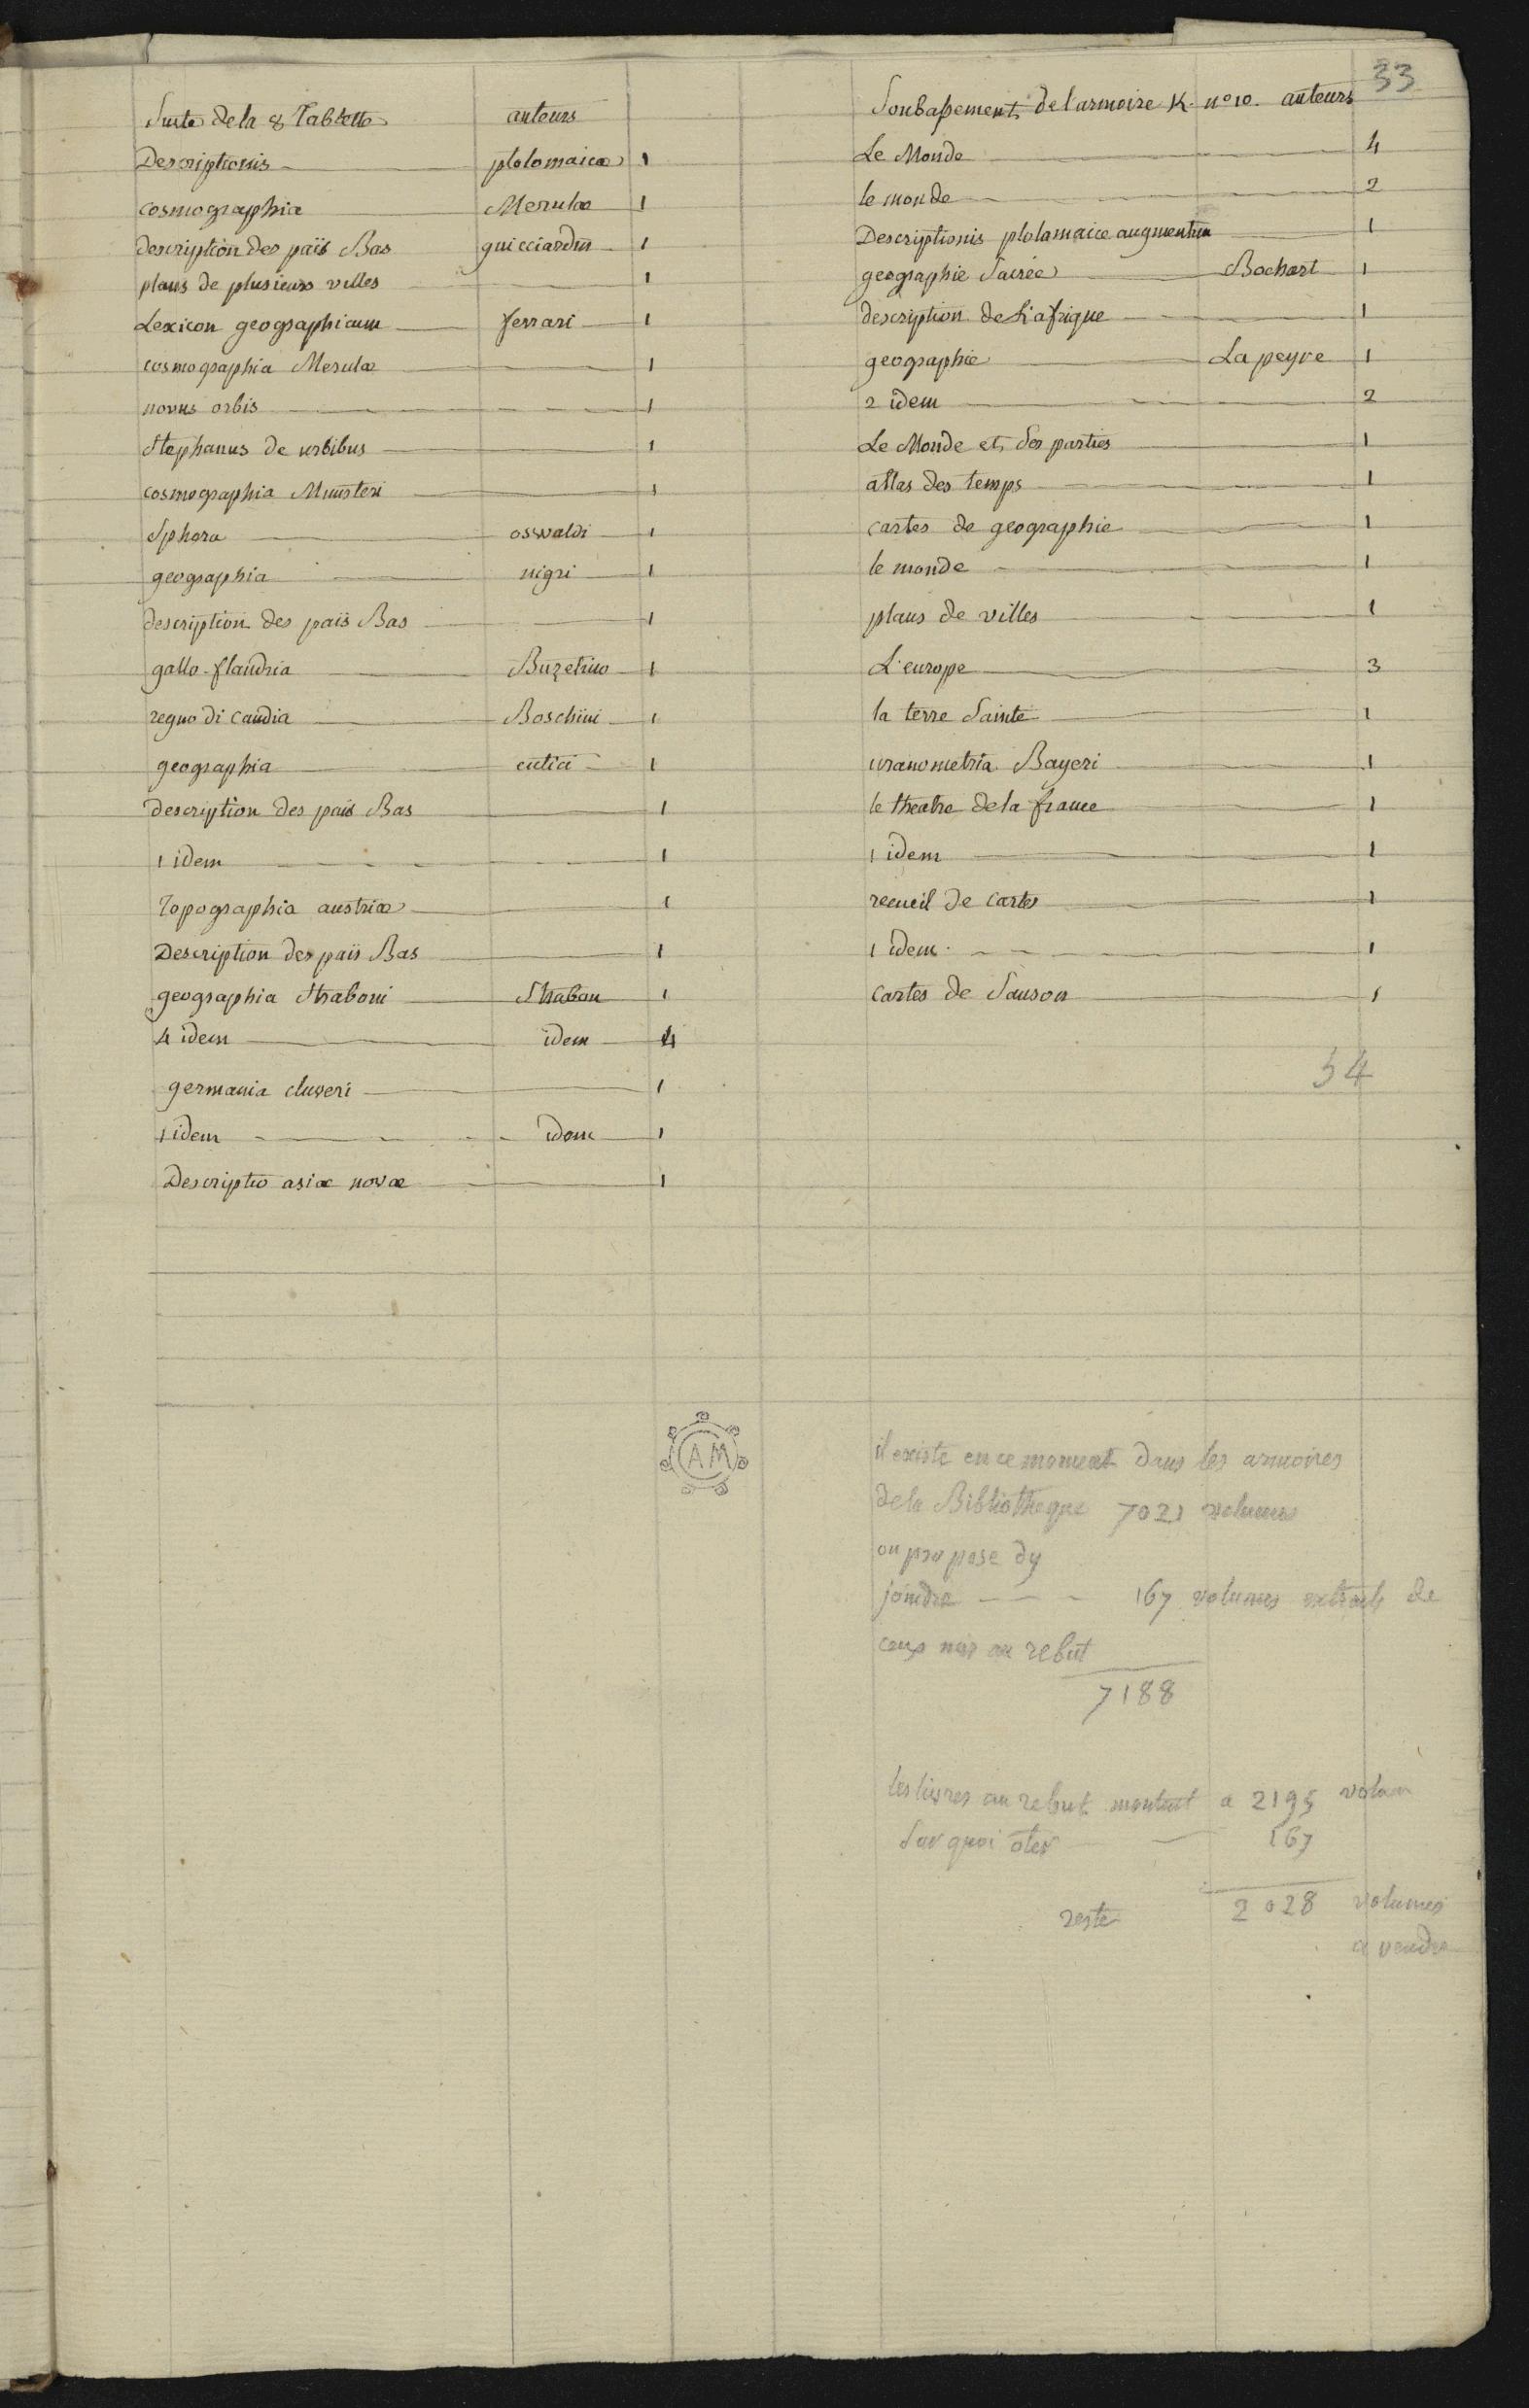 33
Suite de la 8 Tablette auteurs
Descriptionis ptolomaicæ 1
cosmographia Merulæ 1
description des païs Bas guicciardin 1
plans de plusieurs villes 1
Lexicon geographicum ferrari 1
cosmographia Merulæ 1
novus orbis 1
Stephanus de urbibus 1
cosmographia Munsteri 1
Sphera osvaldi 1
geographia nigri 1
description des païs Bas 1
gallo-flandria Buzelino 1
regno di candia Boschini 1
geographia 1
description des païs Bas 1
1 idem 1
Topographia austriæ 1
Description des païs Bas 1
geographia Straboni Strabon 1
4 idem idem 4
germania cluveri 1
1 idem idem 1
Descriptio asiæ novæ 1
Soubassement de l'armoire K. n° 10. auteurs
Le Monde 4
le monde 2
Descriptionis ptolamaicæ augmentum 1
geographie Sacrée Bochart 1
description de L'afrique 1
geographie Lapeyre 1
2 idem 2
Le Monde et Ses parties 1
atlas des temps 1
cartes de geographie 1
le monde 1
plans de villes 1
L'europe 3
la terre Sainte 1
uranometria Bayeri 1
le theatre de la france 1
1 idem 1
recueil de cartes 1
1 idem 1
cartes de Sanson 1
54
AM
il existe en ce moment dans les armoires
de la Bibliotheque 7021 volumes
on propose dy
joindre 167 volumes extraits de
ceux mis au rebut
7188
les livres au rebut montent a 2195 volum
Sur quoi oter 167
reste 2028 volumes
a vendre